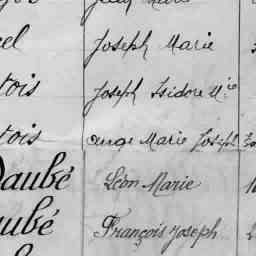 Joseph Marie
tois Joseph Isidore Mie
tois ange Marie Joseph
Daubé Léon Marie
aubé François Joseph